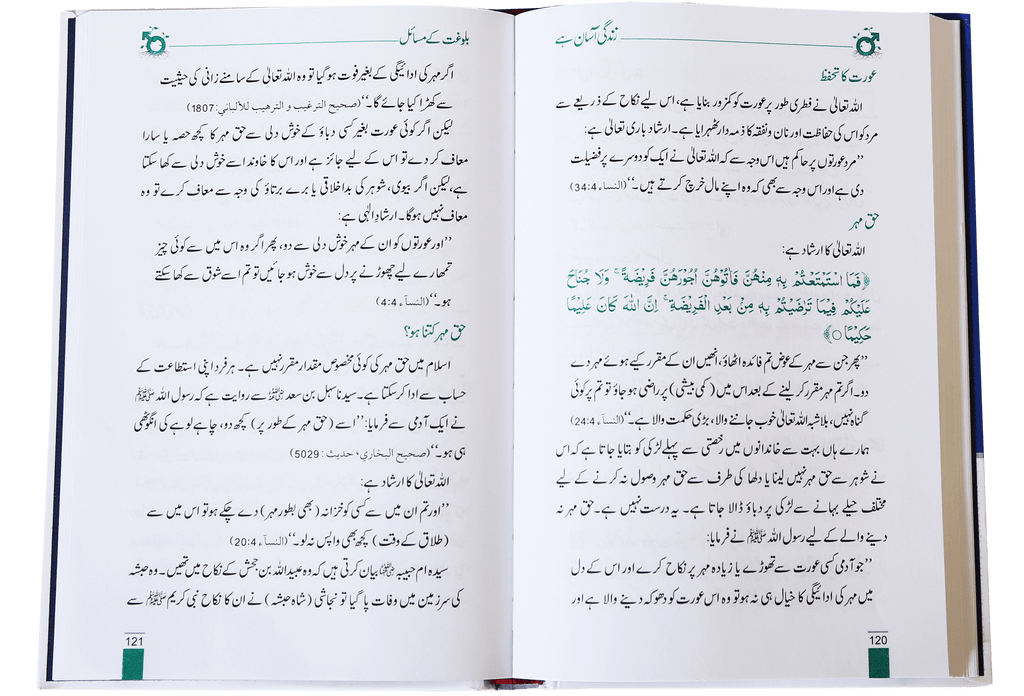 زندگی آسان ہے
عورت کا تحفظ
اللہ تعالیٰ نے فطری طور پر عورت کو کمزور بنایا ہے، اس لیے نکاح کے ذریعے سے
مرد کو اس کی حفاظت اور نان و نفقہ کا ذمہ دار ٹھہرایا ہے۔ ارشاد باری تعالیٰ ہے:
’’مرد عورتوں پر حاکم ہیں اس وجہ سے کہ اللہ تعالیٰ نے ایک کو دوسرے پر فضیلت
دی ہے اور اس وجہ سے بھی کہ وہ اپنے مال خرچ کرتے ہیں۔‘‘ (النساء 34:4)
حق مہر
اللہ تعالیٰ کا ارشاد ہے:
﴿فَمَا اسْتَمْتَعْتُمْ بِهٖ مِنْهُنَّ فَاٰتُوْهُنَّ اُجُوْرَهُنَّ فَرِيْضَةً ۚ وَلَا جُنَاحَ
عَلَيْكُمْ فِيْمَا تَرٰضَيْتُمْ بِهٖ مِنْ بَعْدِ الْفَرِيْضَةِ ۚ اِنَّ اللّٰهَ كَانَ عَلِيْمًا
حَكِيْمًا ○﴾
’’پھر جن سے مہر کے عوض تم فائدہ اٹھاؤ، انھیں ان کے مقرر کیے ہوئے مہر دے
دو۔ اگر تم مہر مقرر کر لینے کے بعد اس میں (کمی بیشی) پر راضی ہو جاؤ تو تم پر کوئی
گناہ نہیں، بلاشبہ اللہ تعالیٰ خوب جاننے والا، بڑی حکمت والا ہے۔‘‘ (النسآء 24:4)
ہمارے ہاں بہت سے خاندانوں میں رخصتی سے پہلے لڑکی کو بتایا جاتا ہے کہ اس
نے شوہر سے حق مہر نہیں لینا یا دلھا کی طرف سے حق مہر وصول نہ کرنے کے لیے
مختلف حیلے بہانے سے لڑکی پر دباؤ ڈالا جاتا ہے۔ یہ درست نہیں ہے۔ حق مہر نہ
دینے والے کے لیے رسول اللہ ﷺ نے فرمایا:
’’جو آدمی کسی عورت سے تھوڑے یا زیادہ مہر پر نکاح کرے اور اس کے دل
میں مہر کی ادائیگی کا خیال ہی نہ ہو تو وہ اس عورت کو دھوکہ دینے والا ہے اور
120
بلوغت کے مسائل
اگر مہر کی ادائیگی کے بغیر فوت ہو گیا تو وہ اللہ تعالیٰ کے سامنے زانی کی حیثیت
سے کھڑا کیا جائے گا۔‘‘ (صحیح الترغیب و الترهیب للألباني: 1807)
لیکن اگر کوئی عورت بغیر کسی دباؤ کے خوش دلی سے حق مہر کا کچھ حصہ یا سارا
معاف کر دے تو اس کے لیے جائز ہے اور اس کا خاوند اسے خوش دلی سے کھا سکتا
ہے، لیکن اگر بیوی، شوہر کی بداخلاقی یا برے برتاؤ کی وجہ سے معاف کرے تو وہ
معاف نہیں ہوگا۔ ارشادِ الٰہی ہے:
’’اور عورتوں کو ان کے مہر خوش دلی سے دو، پھر اگر وہ اس میں سے کوئی چیز
تمھارے لیے چھوڑنے پر دل سے خوش ہو جائیں تو تم اسے شوق سے کھا سکتے
ہو۔‘‘ (النسآء 4:4)
حق مہر کتنا ہو؟
اسلام میں حق مہر کی کوئی مخصوص مقدار مقرر نہیں ہے۔ ہر فرد اپنی استطاعت کے
حساب سے ادا کر سکتا ہے۔ سیدنا سہل بن سعد رضی اللہ عنہ سے روایت ہے کہ رسول اللہ ﷺ
نے ایک آدمی سے فرمایا: ’’اسے (حق مہر کے طور پر) کچھ دو، چاہے لوہے کی انگوٹھی
ہی ہو۔‘‘ (صحیح البخاري، حدیث: 5029)
اللہ تعالیٰ کا ارشاد ہے:
’’اور تم ان میں سے کسی کو خزانہ (بھی بطور مہر) دے چکے ہو تو اس میں سے
(طلاق کے وقت) کچھ بھی واپس نہ لو۔‘‘ (النسآء 20:4)
سیدہ ام حبیبہ رضی اللہ عنہا بیان کرتی ہیں کہ وہ عبیداللہ بن جحش کے نکاح میں تھیں۔ وہ حبشہ
کی سرزمین میں وفات پا گیا تو نجاشی (شاہ حبشہ) نے ان کا نکاح نبی کریم ﷺ سے
121